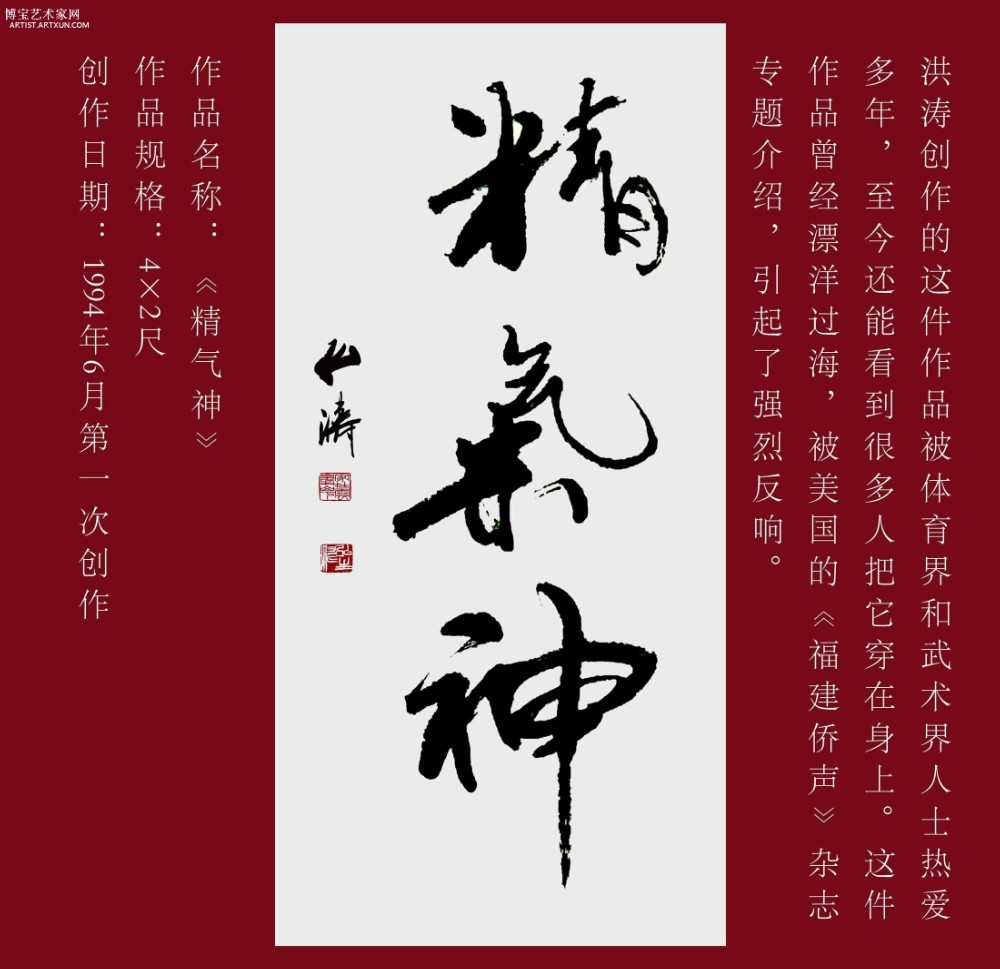 博宝艺术家网
ARTIST.ARTXUN.COM
洪涛创作的这件作品被体育界和武术界人士热爱
多年，至今还能看到很多人把它穿在身上。这件
作品曾经漂洋过海，被美国的《福建侨声》杂志
专题介绍，引起了强烈反响。
精氣神
作品名称：《精气神》
作品规格：4×2尺
创作日期：1994年6月第一次创作